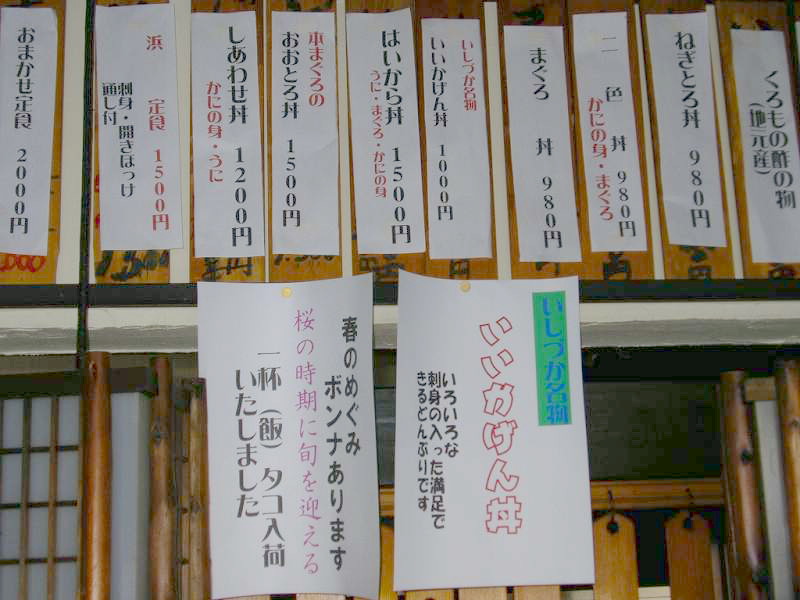 くろもの酢の物
(地元産)
ねぎとろ丼 980円
二色丼 980円
かにの身・まぐろ
まぐろ丼 980円
いしづか名物
いいかげん丼 1000円
はいから丼 1500円
うに・まぐろ・かにの身
本まぐろの
おおとろ丼 1500円
しあわせ丼 1200円
かにの身・うに
浜定食 1500円
刺身・開きほっけ
通し付
おまかせ定食 2000円
いしづか名物
いいかげん丼
いろいろな
刺身の入った満足で
きるどんぶりです
春のめぐみ
ボンナあります
桜の時期に旬を迎える
一杯(飯)タコ入荷
いたしました